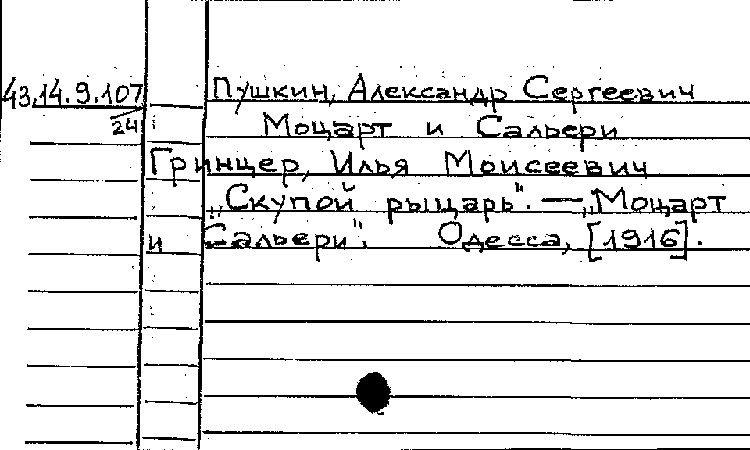 43.14.9.107 Пушкин, Александр Сергеевич
24 Моцарт и Сальери
Гринцер, Илья Моисеевич
„Скупой рыцарь". — „Моцарт
и Сальери". Одесса, [1916].